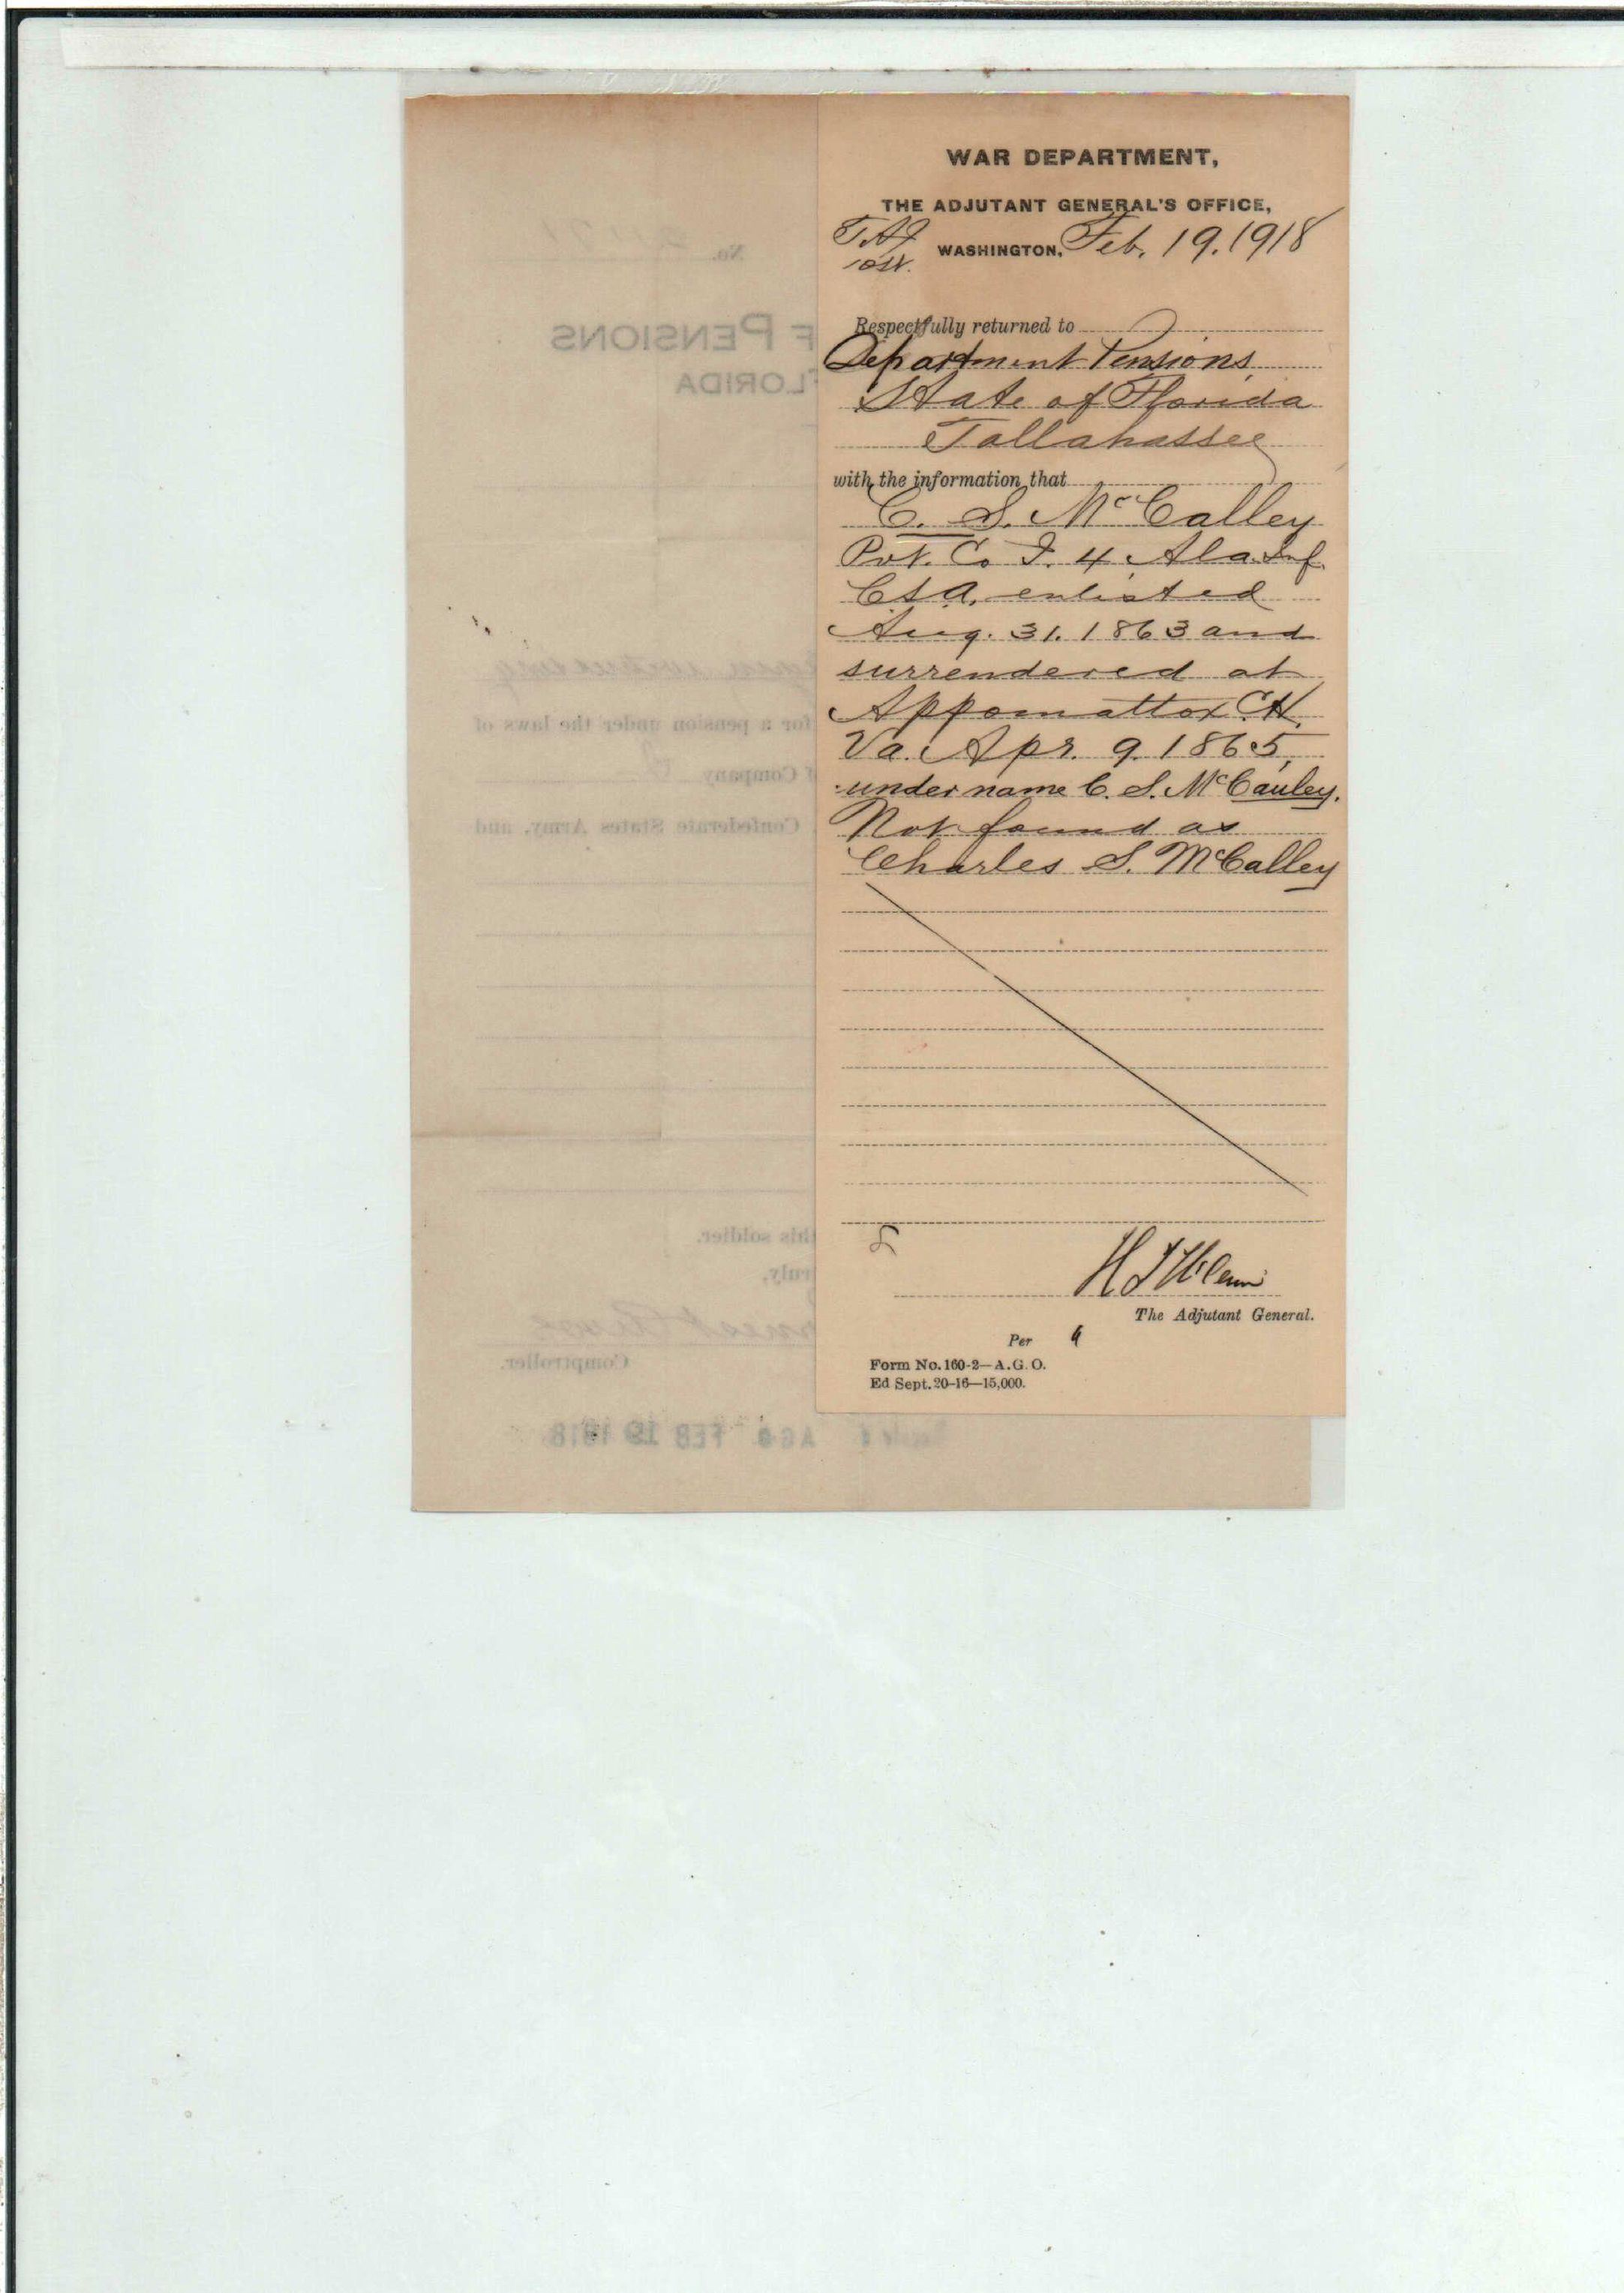 WAR DEPARTMENT,
THE ADJUTANT GENERAL'S OFFICE,
WASHINGTON, Feb. 19. 1918
Respectfully returned to
Department Pensions
State of Florida
Tallahassee
with the information that
C. S. McCalley
Pvt. Co I. 4 Ala. Inf.
CSA, enlisted
Aug. 31. 1863 and
surrendered at
Appomattox C.H.
Va. Apr. 9. 1865,
under name C. S. McCauley.
Not found as
Charles S. McCalley
The Adjutant General.
Per
Form No. 160-2—A.G.O.
Ed Sept. 20-16—15,000.
No.
F PENSIONS
FLORIDA
for a pension under the laws of
f Company
Confederate States Army, and
this soldier.
truly,
Comptroller.
AGO FEB 19 1918